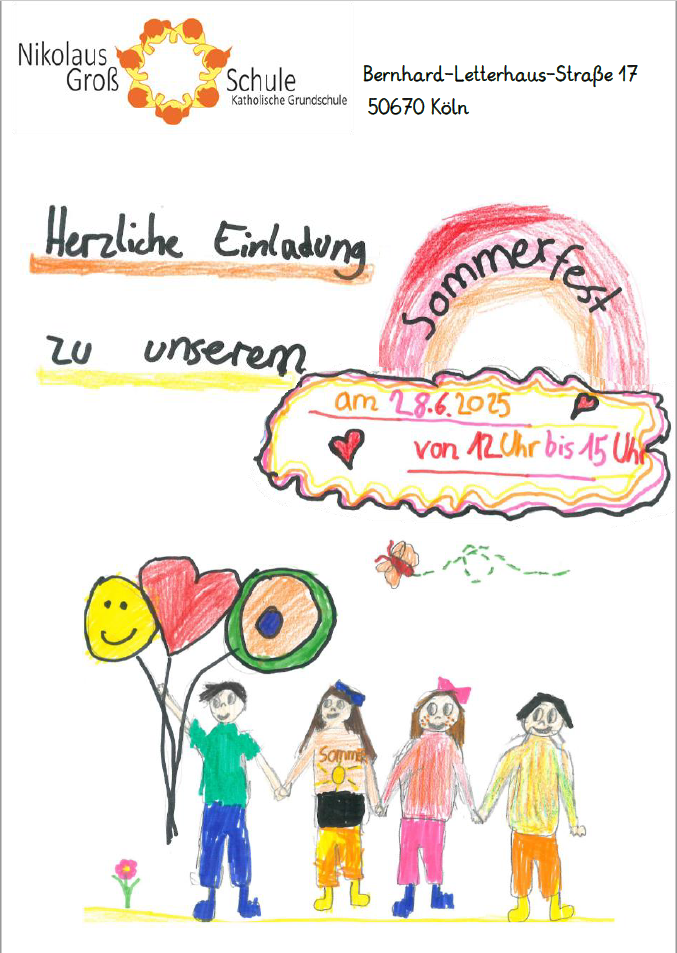 Nikolaus
Groß
Schule
Katholische Grundschule
Bernhard-Letterhaus-Straße 17
50670 Köln
Herzliche Einladung
zu unserem
Sommerfest
am 28.6.2025
von 12 Uhr bis 15 Uhr
Sommer